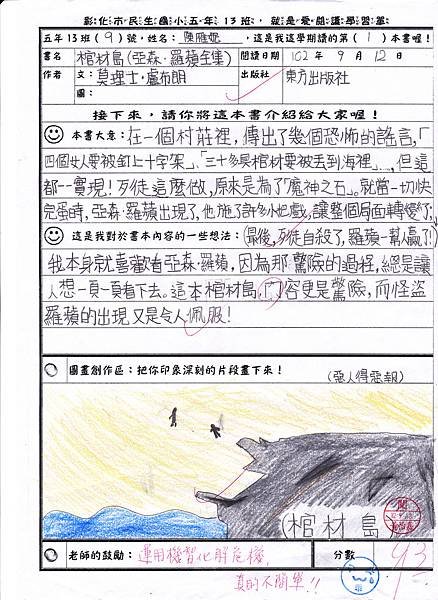 彰化市民生國小五年13班,就是愛閱讀學習單
五年13班(9)號,姓名:陳雁妮,這是我這學期讀的第(1)本書喔!
書名 棺材島(亞森·羅蘋全集) 閱讀日期 102年9月12日
作者 文:莫理士·盧布朗 出版社 東方出版社
圖:
接下來,請你將這本書介紹給大家喔!
本書大意:在一個村莊裡,傳出了幾個恐怖的謠言,「
四個女人要被釘上十字架」、「三十多具棺材要被丟到海裡……,但這
都一一實現!歹徒這麼做,原來是為了「魔神之石」。就當一切快
完蛋時,亞森·羅蘋出現了,他施了許多小把戲,讓整個局面轉變了;
這是我對於書本內容的一些想法:(最後,歹徒自殺了,羅蘋一幫人贏了!)
我本身就喜歡看亞森·羅蘋,因為那驚險的過程,總是讓
人想一頁一頁看下去。這本棺材島,內容更是驚險,而怪盜
羅蘋的出現又是令人佩服!
圖畫創作區:把你印象深刻的片段畫下來!
(惡人得惡報)
(棺材島)
閱
老師的鼓勵:運用機智化解危機, 分數 93
真的不簡單!!